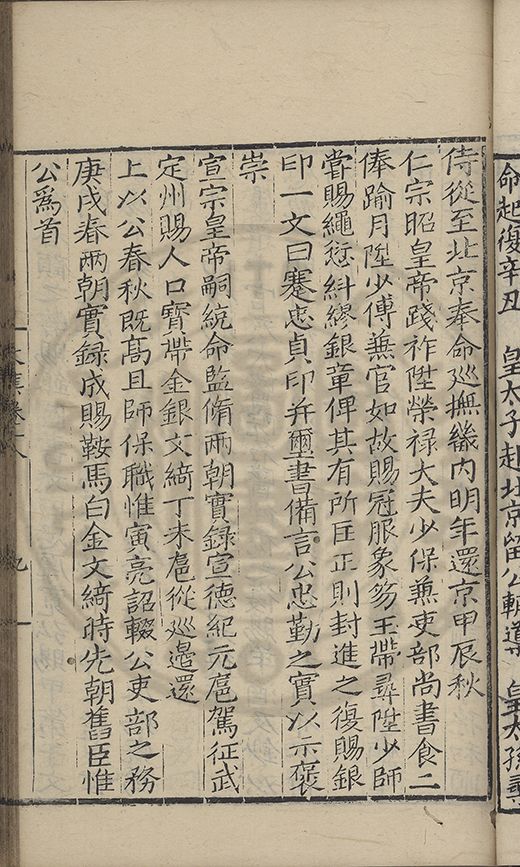 命起復辛丑　皇太子赴北京留公輔導　皇太孫尋
侍從至北京奉命巡撫畿內明年還京甲辰秋
仁宗昭皇帝踐祚陞榮祿大夫少保兼吏部尚書食二
俸踰月陞少傅兼官如故賜冠服象笏玉帶尋陞少師
嘗賜繩愆糾繆銀章俾其有所匡正則封進之復賜銀
印一文曰蹇忠貞印并璽書備言公忠勤之實以示褒
崇
宣宗皇帝嗣統命監脩兩朝實錄宣德紀元扈駕征武
定州賜人口寳帶金銀文綺丁未扈從巡邊還
上以公春秋既高且師保職惟寅亮詔輟公吏部之務
庚戌春兩朝實録成賜鞍馬白金文綺時先朝舊臣惟
公爲首